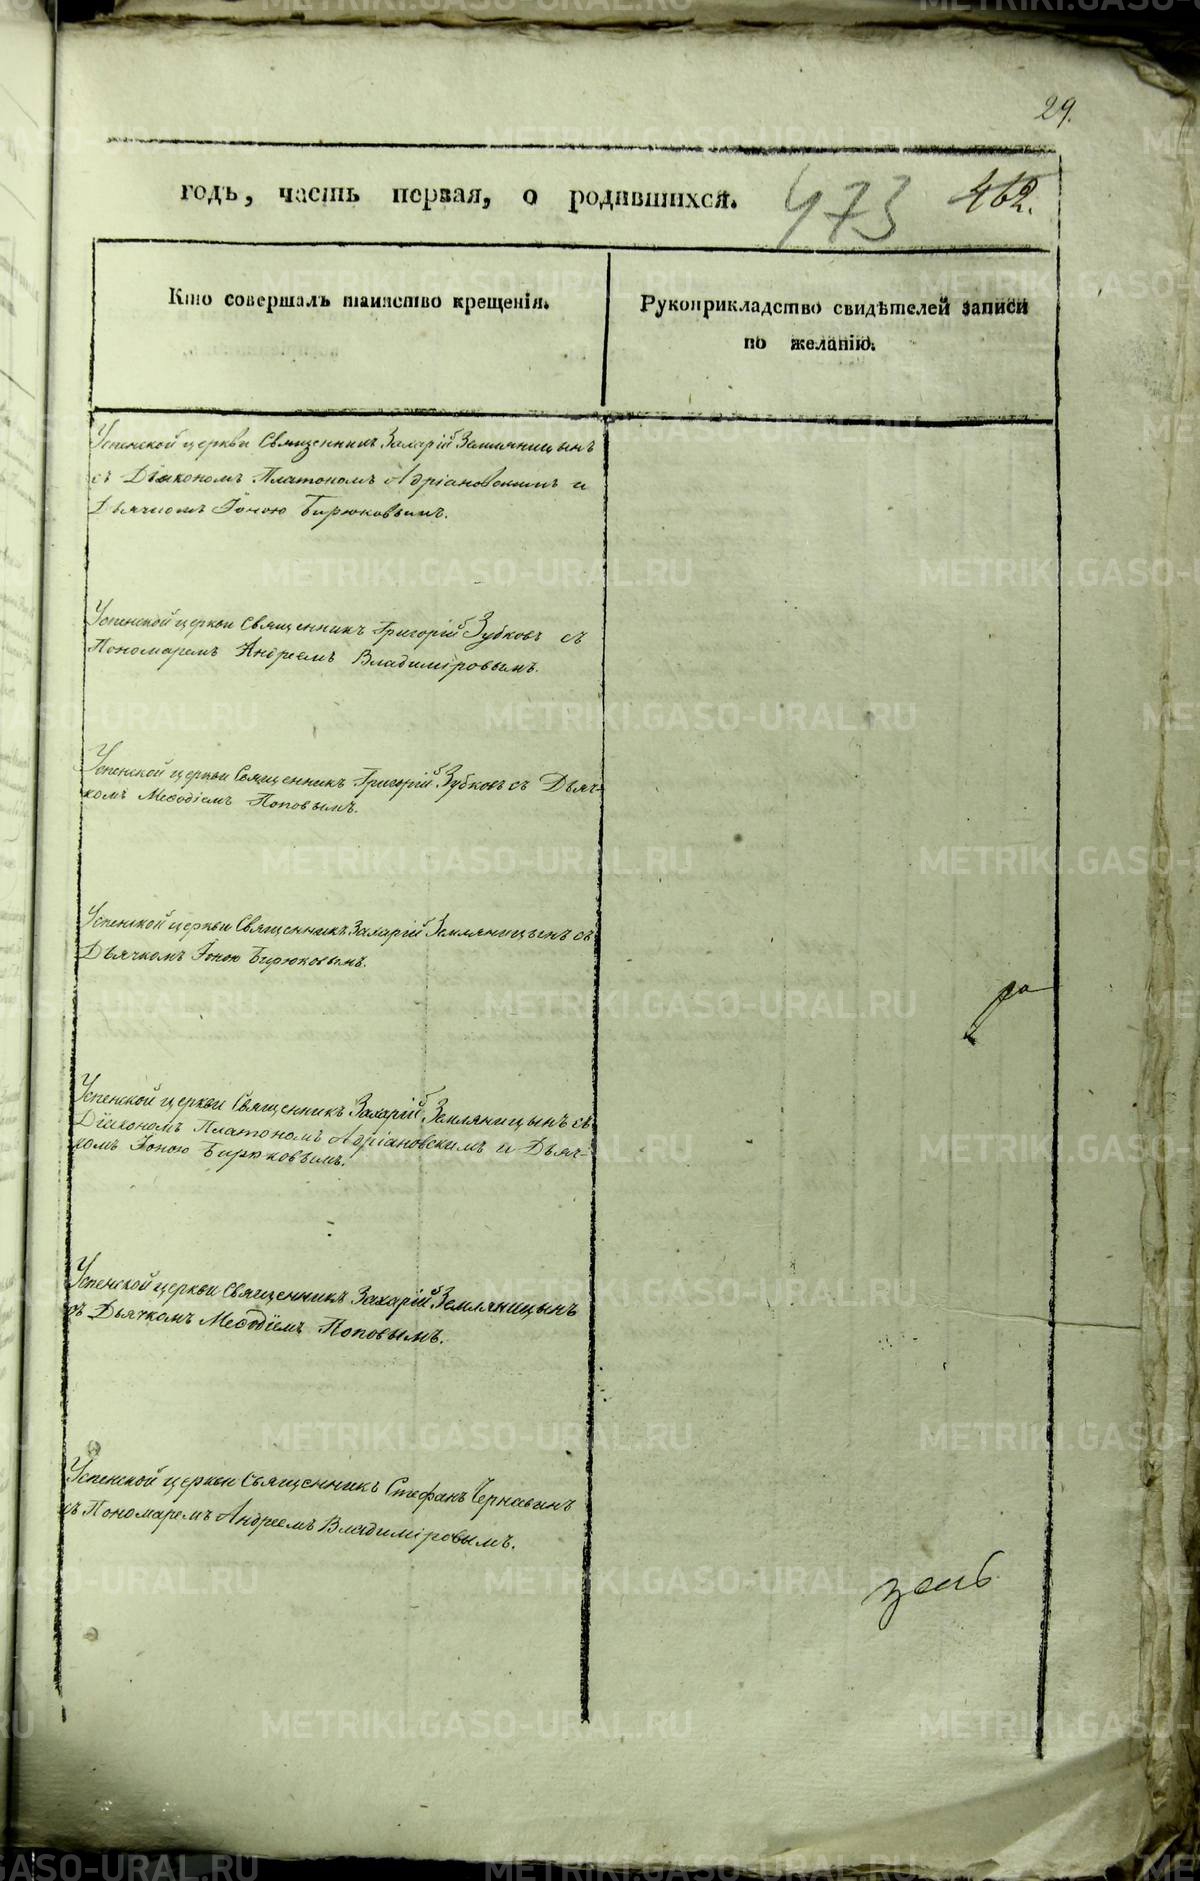 29.
годъ, часть первая, о родившихся.
473 462.
Кто совершалъ таинство крещенія.
Рукоприкладство свидѣтелей записи
по желанію.
Успенской церкви Священникъ Захарій Земляницынъ
съ Діакономъ Платономъ Адріановскимъ и
Дьячкомъ Іоною Бирюковымъ.
Успенской церкви Священникъ Григорій Зубковъ съ
Пономаремъ Андреемъ Владиміровымъ.
Успенской церкви Священникъ Григорій Зубковъ съ Дьяч-
комъ Меѳодіемъ Поповымъ.
Успенской церкви Священникъ Захарій Земляницынъ съ
Дьячкомъ Іоною Бирюковымъ.
Успенской церкви Священникъ Захарій Земляницынъ съ
Діакономъ Платономъ Адріановскимъ и Дьяч-
комъ Іоною Бирюковымъ.
Успенской церкви Священникъ Захарій Земляницынъ
съ Дьячкомъ Меѳодіемъ Поповымъ.
Успенской церкви Священникъ Стефанъ Чернавинъ
съ Пономаремъ Андреемъ Владиміровымъ.
METRIKI.GASO-URAL.RU